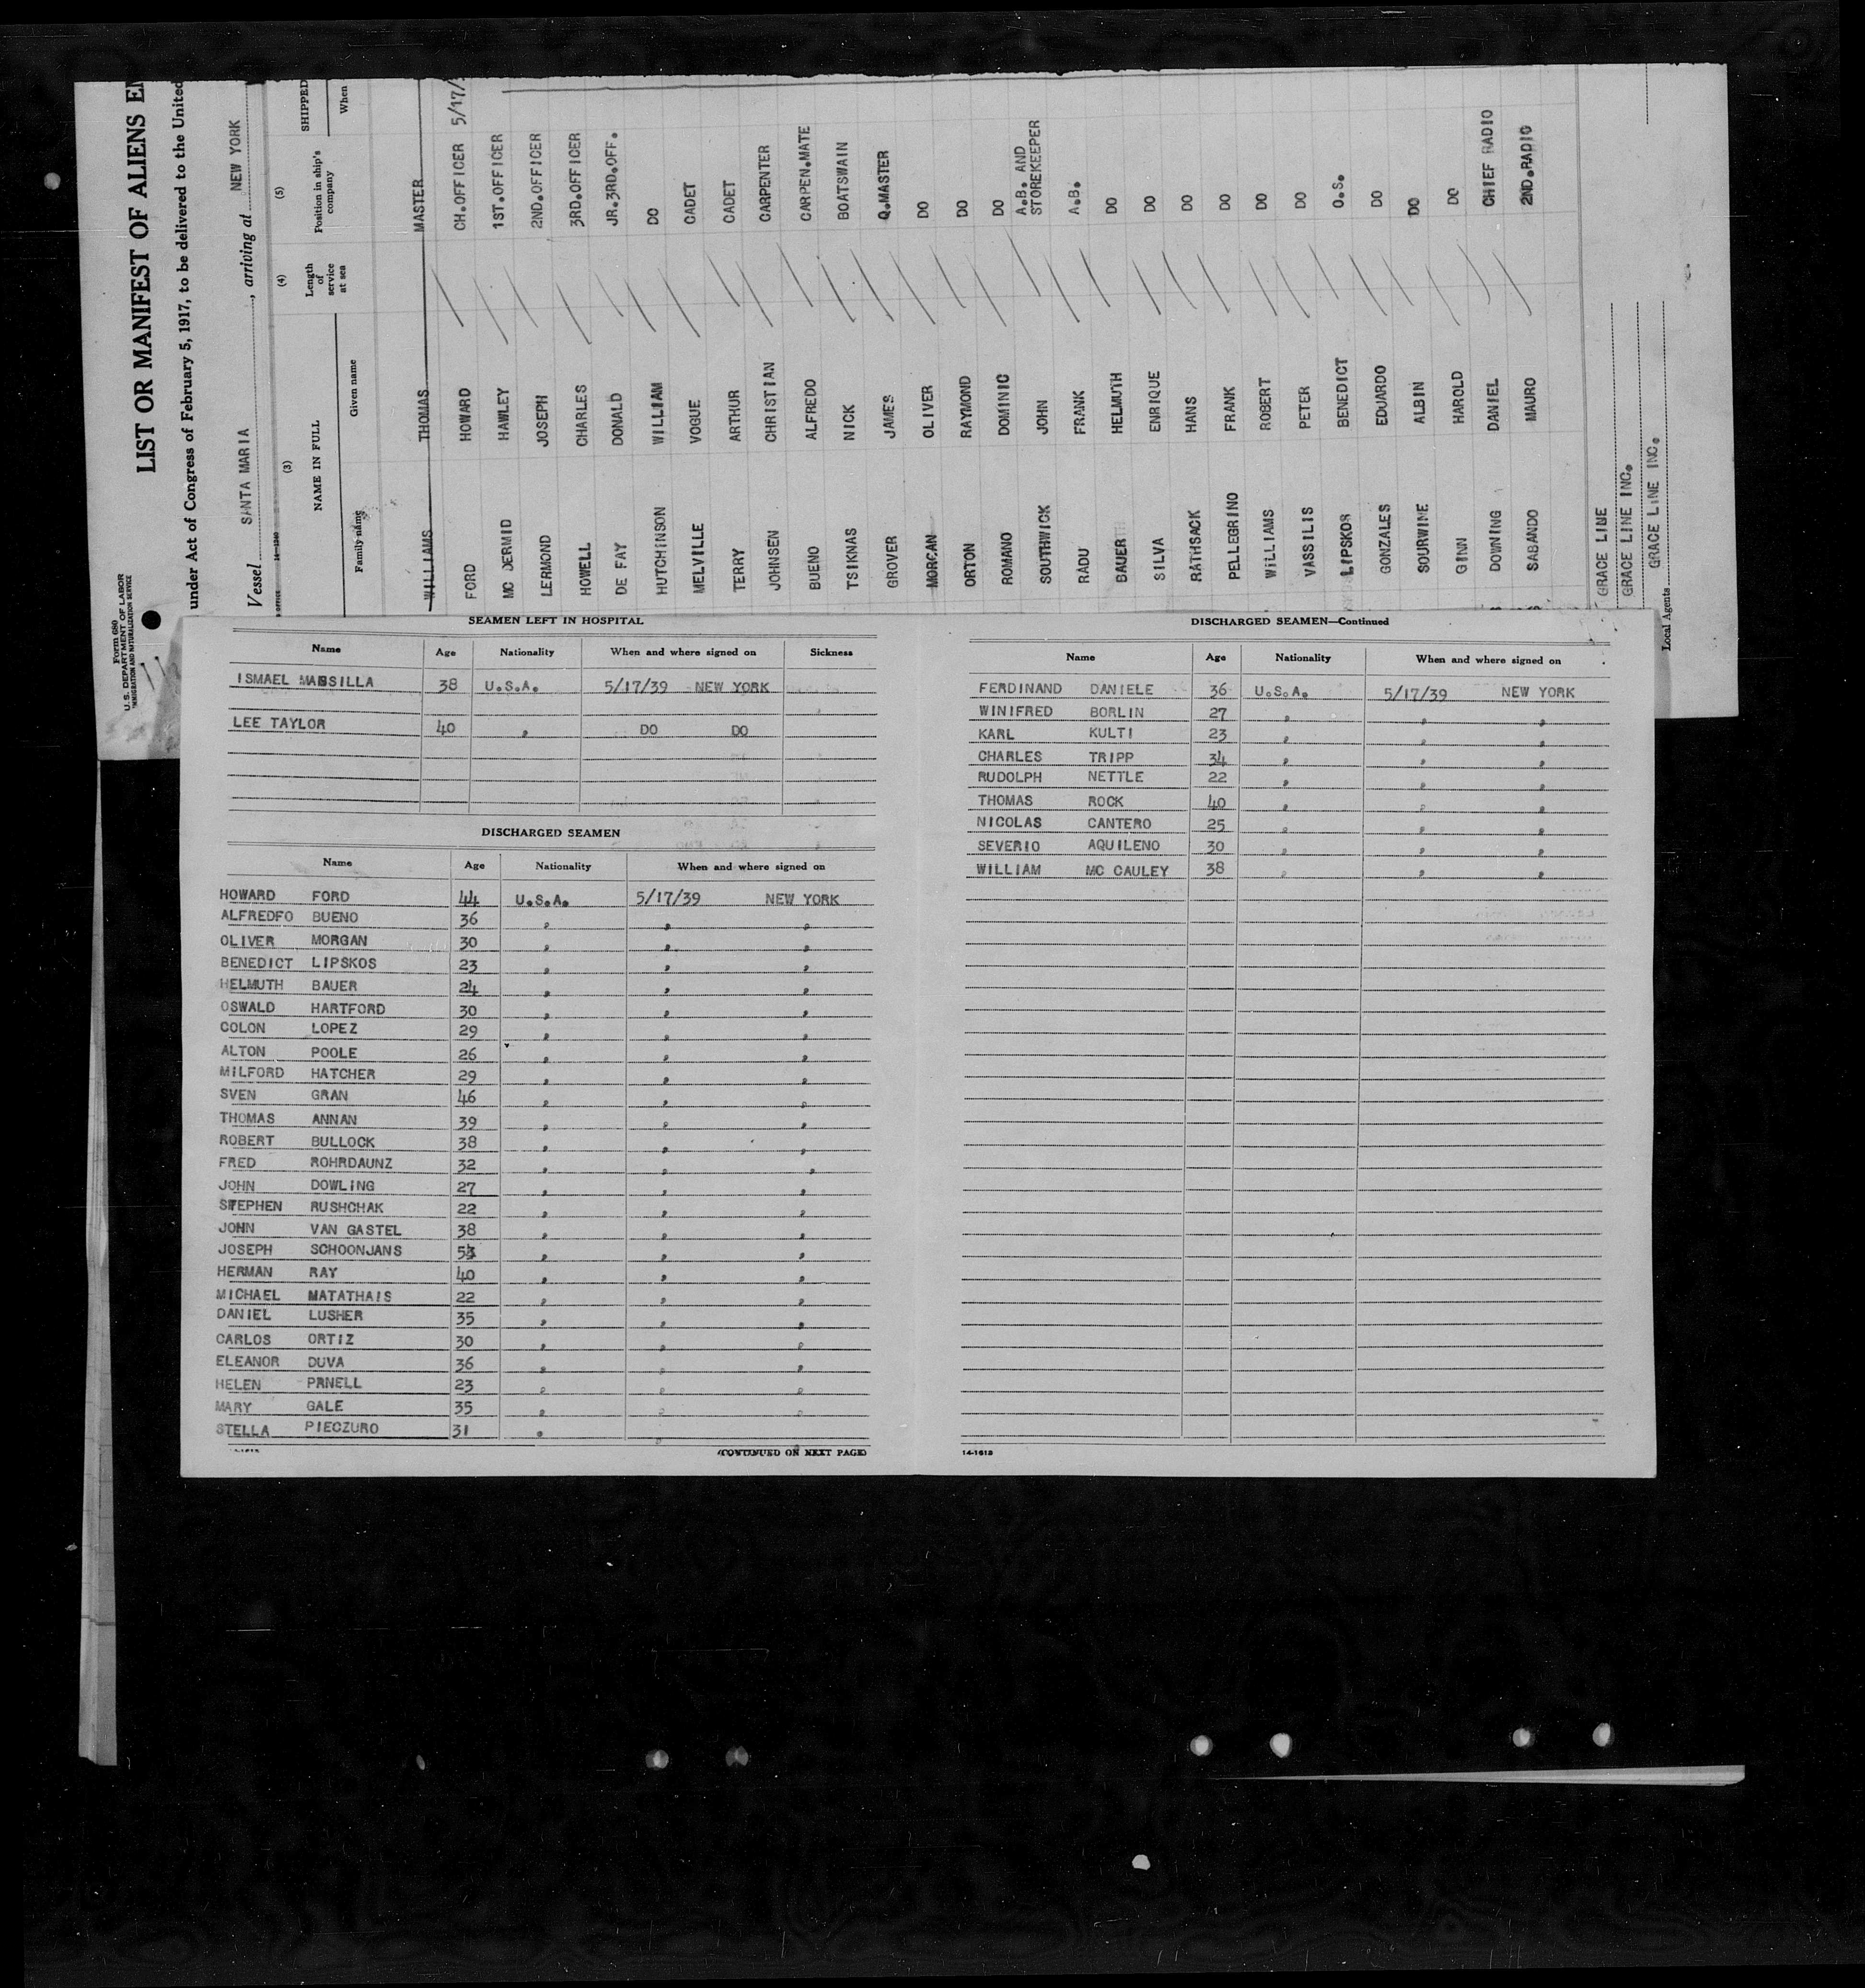 Form 680
U. S. DEPARTMENT OF LABOR
IMMIGRATION AND NATURALIZATION SERVICE
LIST OR MANIFEST OF ALIENS
under Act of Congress of February 5, 1917, to be delivered to the United
Vessel SANTA MARIA, arriving at NEW YORK
(3) (4) (5)
NAME IN FULL Length of service at sea Position in ship's company SHIPPED
Family name Given name When
WILLIAMS THOMAS MASTER
FORD HOWARD CH.OFFICER 5/17/
MC DERMID HAWLEY 1ST.OFFICER
LERMOND JOSEPH 2ND.OFFICER
HOWELL CHARLES 3RD.OFFICER
DE FAY DONALD JR.3RD.OFF.
HUTCHINSON WILLIAM DO
MELVILLE VOGUE CADET
TERRY ARTHUR CADET
JOHNSEN CHRISTIAN CARPENTER
BUENO ALFREDO CARPEN.MATE
TSIKNAS NICK BOATSWAIN
GROVER JAMES Q.MASTER
MORGAN OLIVER DO
ORTON RAYMOND DO
ROMANO DOMINIC DO
SOUTHWICK JOHN A.B. AND STOREKEEPER
RADU FRANK A.B.
BAUER HELMUTH DO
SILVA ENRIQUE DO
RATHSACK HANS DO
PELLEGRINO FRANK DO
WILLIAMS ROBERT DO
VASSILIS PETER DO
LIPSKOS BENEDICT O.S.
GONZALES EDUARDO DO
SOURWINE ALBIN DO
GINN HAROLD DO
DOWNING DANIEL CHIEF RADIO
SABANDO MAURO 2ND.RADIO
GRACE LINE
GRACE LINE INC.
Local Agents GRACE LINE INC.
SEAMEN LEFT IN HOSPITAL
Name Age Nationality When and where signed on Sickness
ISMAEL MANSILLA 38 U.S.A. 5/17/39 NEW YORK
LEE TAYLOR 40 " DO DO
DISCHARGED SEAMEN
Name Age Nationality When and where signed on
HOWARD FORD 44 U.S.A. 5/17/39 NEW YORK
ALFREDFO BUENO 36 " " "
OLIVER MORGAN 30 " " "
BENEDICT LIPSKOS 23 " " "
HELMUTH BAUER 24 " " "
OSWALD HARTFORD 30 " " "
COLON LOPEZ 29 " " "
ALTON POOLE 26 " " "
MILFORD HATCHER 29 " " "
SVEN GRAN 46 " " "
THOMAS ANNAN 39 " " "
ROBERT BULLOCK 38 " " "
FRED ROHRDAUNZ 32 " " "
JOHN DOWLING 27 " " "
STEPHEN RUSHCHAK 22 " " "
JOHN VAN GASTEL 38 " " "
JOSEPH SCHOONJANS " " "
HERMAN RAY 40 " " "
MICHAEL MATATHAIS 22 " " "
DANIEL LUSHER 35 " " "
CARLOS ORTIZ 30 " " "
ELEANOR DUVA 36 " " "
HELEN PRNELL 23 " " "
MARY GALE 35 " " "
STELLA PIECZURO 31 " "
(CONTINUED ON NEXT PAGE)
DISCHARGED SEAMEN—Continued
Name Age Nationality When and where signed on
FERDINAND DANIELE 36 U.S.A. 5/17/39 NEW YORK
WINIFRED BORLIN 27 " " "
KARL KULTI 23 " " "
CHARLES TRIPP 34 " " "
RUDOLPH NETTLE 22 " " "
THOMAS ROCK 40 " " "
NICOLAS CANTERO 25 " " "
SEVERIO AQUILENO 30 " " "
WILLIAM MC CAULEY 38 " " "
14-1618